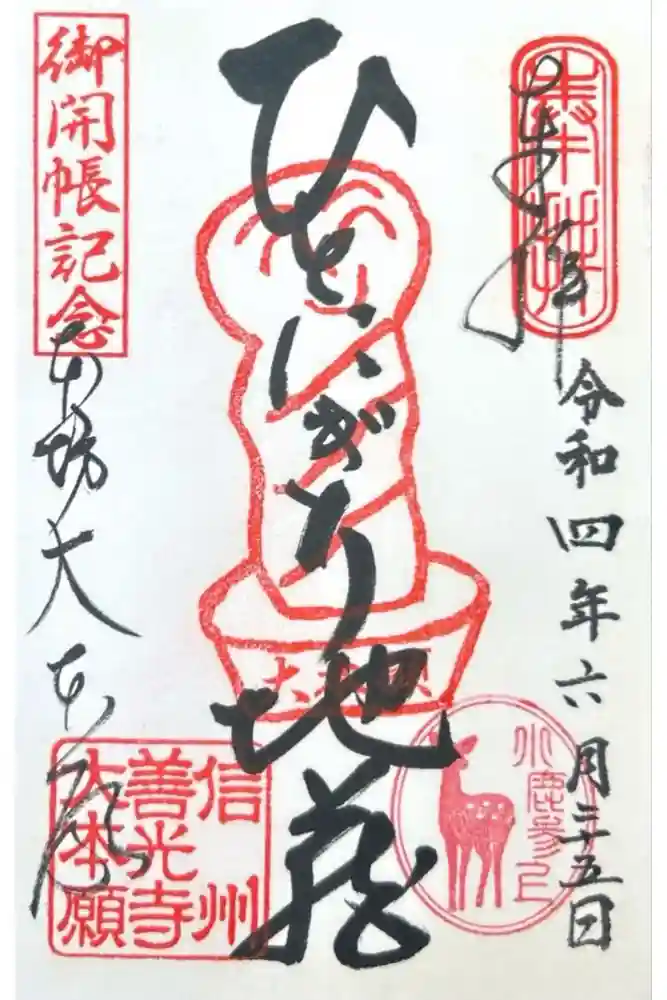 奉拝
奉拝
令和四年六月二十五日
ひとにぎり地蔵
大本願
小鹿参上
御開帳記念
本坊大本願
信州
善光寺
大本願